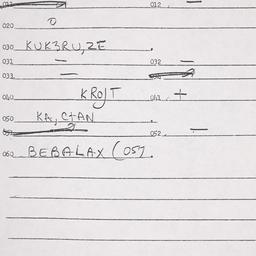 011 012 —
020 0
030 KUKƷRU,ZE .
031 — 032 —
033 —
040 KROJT 041 . +
050 KA, C+AN .
052 . —
060 BEBALAX (051.